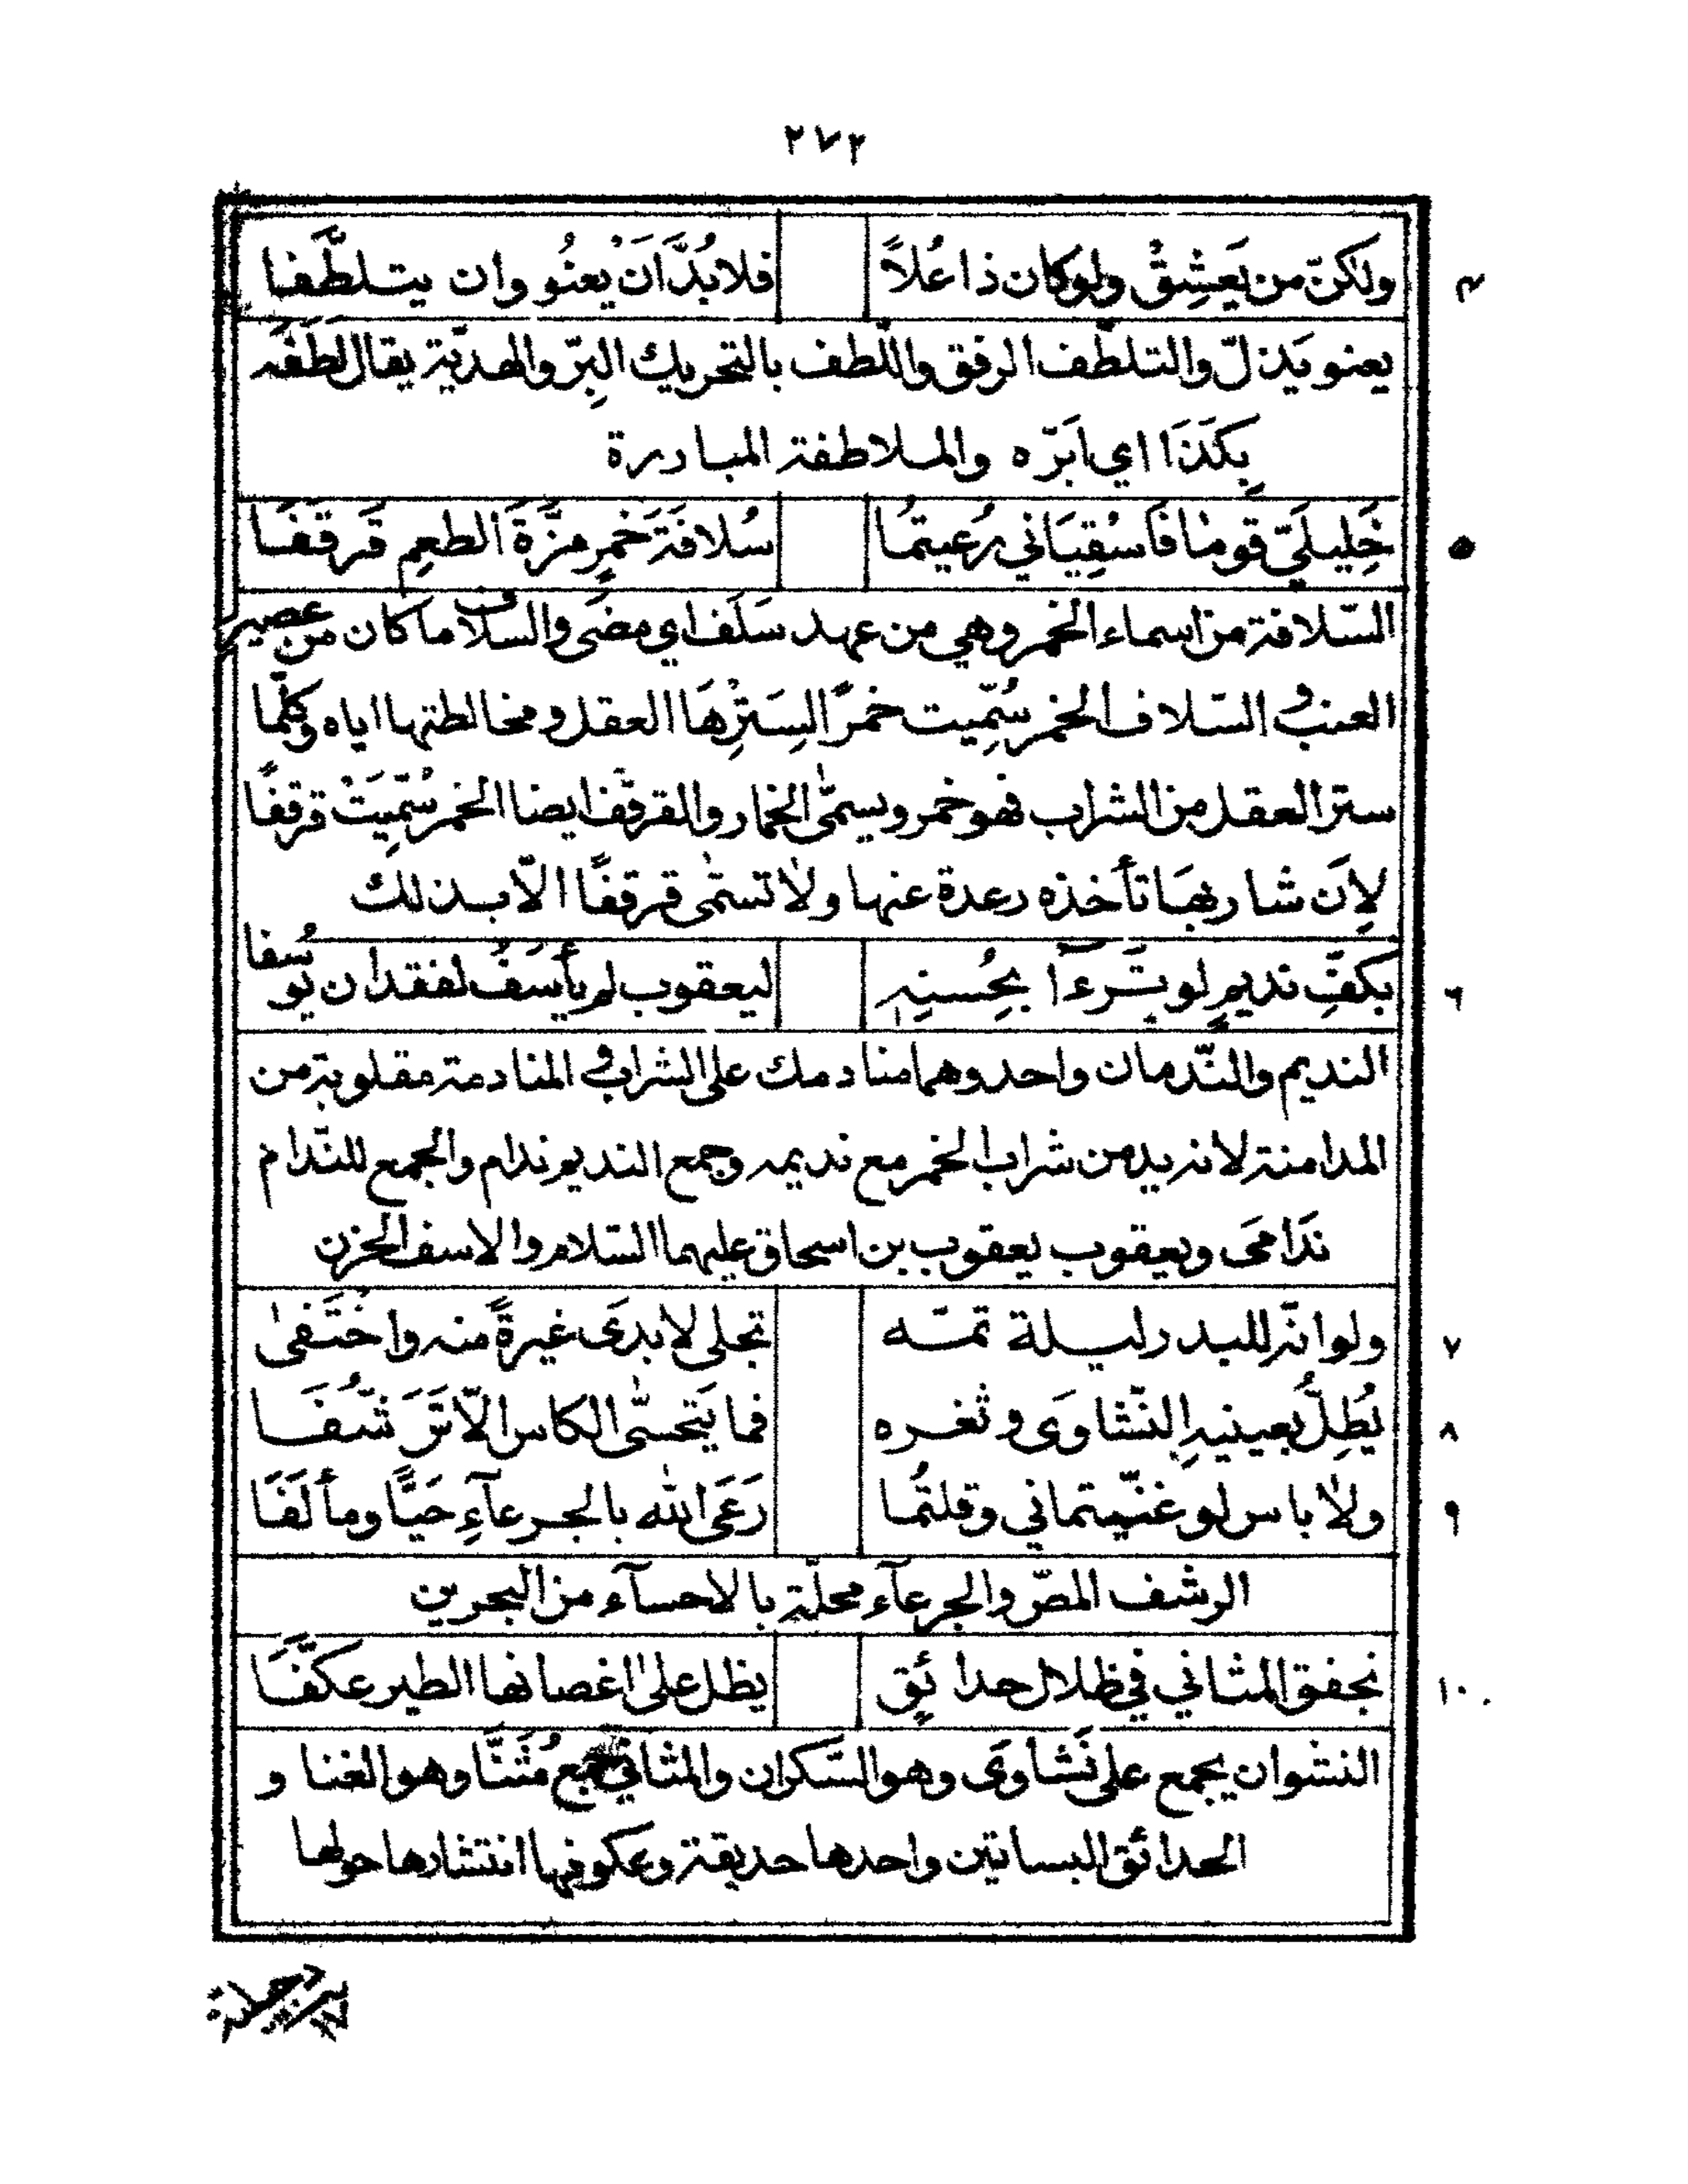 ٢٧٢
٤ ولكنّ من يَعشِقُ ولوكان ذا عُلاً فلا بُدَّ اَن يعنُو وان يتلطَّفا
يعنو يَذلّ والتلطّف الرفق واللّطف بالتحريك البِرّ والهديّة يقال لطَفَه
بِكَذَا اي ابَرّه والملاطفة المبادرة
٥ خَلِيلَيّ قوما فَاسْقِيَاني رُعيتمُا سُلافَةَ خمرٍ مزَّةَ الطعمِ قَرقَفَا
السّلافة من اسماء الخمر وهي من عهد سَلَف اي مضَى والسلاف ما كان من عصير
العنب و السّلاف الخمر سُمِّيت خمرًا لِسَترِهَا العقل و مخالطتها اياه وكلّما
ستر العقل من الشراب فهو خمر ويسمّى الخمار والقرقف ايضا الخمر سُمِّيَتْ قرقفًا
لِاَن شاربهَا تأخذه رعدة عنها ولا تسمّى قرقفًا الاّ بذلك
٦ بكفِّ نديمٍ لو يَترءآ بحُسنِهِ ليعقوب لم يأسَفُ لفقدان يوسُفا
النديم والنّدمان واحد وهما منادمك على الشراب في المنادمة مقلوبة من
المدامنة لانه يدمن شراب الخمر مع نديمه وجمع النديم ندام والجمع للنّدام
نَدَامَى ويعقوب يعقوب بن اسحاق عليهما السّلام والاسف الحزن
٧ ولو انّه للبدر ليلة تمّه تجلى لابدَى غيرةً منه واختَفىٰ
٨ يُطِلُّ بعينيهِ النّشاوَى وثغره فما يَتحسّى الكاس الاّ تَرَشّفَا
٩ ولا باس لو غنّيتماني وقلتُما رَعَى الله بالجرعآءِ حَيًّا ومألَفَا
الرشف المصّ والجرعآء محلّة بالاحسآء من البحرين
١٠ نجفق المثاني في ظلال حدائقٍ يظل على اغصانها الطير عكَّفَا
النشوان يجمع على نَشاوَى وهو السّكران والمثاني جمع مُثَنَّا وهو الغنا و
الحدائق البساتين واحدها حديقة وعكوفها انتشارها حولها